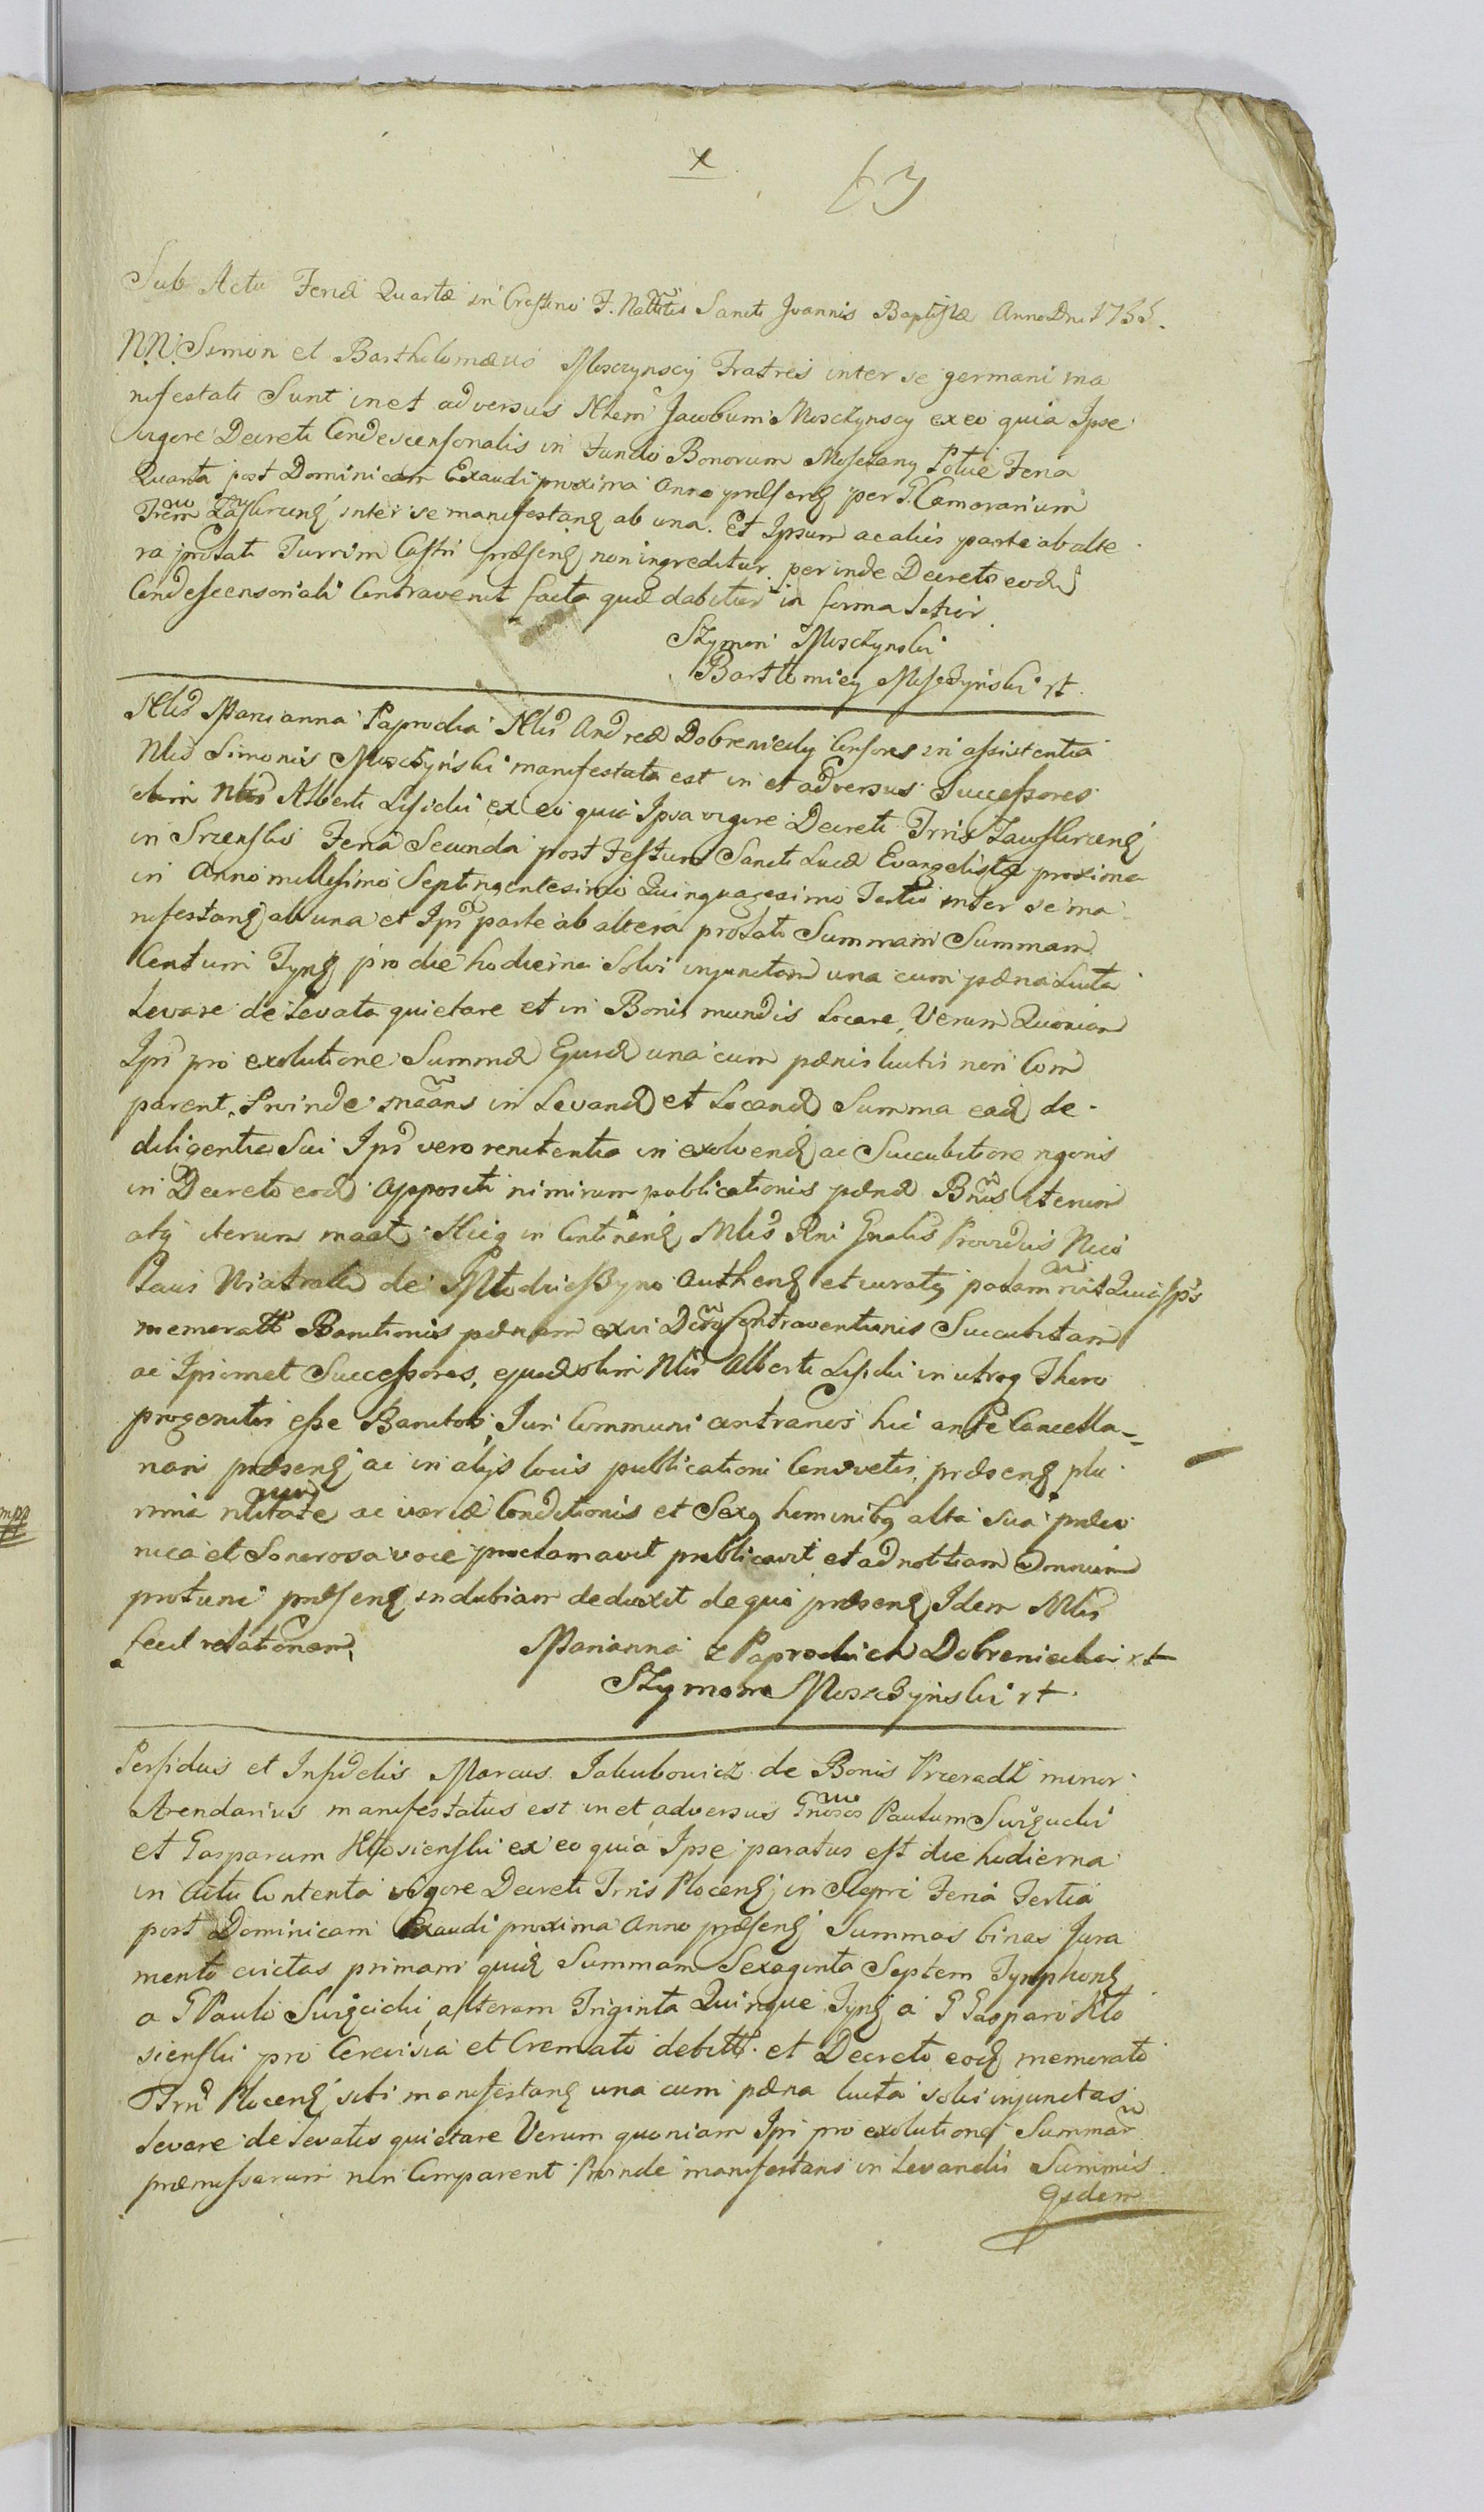 x
63
Sub Actu Feria Quarta in Crastino F. Nattitis Sancti Joannis Baptistæ Anno Dni 1755.
NN. Simon et Bartholomæus Mosczynscy Fratres inter se germani ma
nifestati Sunt in et adversus Nlem Jacobum Mosczynscy ex eo quia Ipse
vigore Decreti Condescensorialis in Fundo Bonorum Potue Feria
Quarta post Dominicam Exaudi proxima Anno præsenȝ per G. Camerarium
Trem Zauskrcenȝ inter se manifestanȝ ab una. Et Ipsum ac aliis parte ab alte
ra prolati Turrim Castri præsenȝ non ingreditur. perinde Decreto eodȝ
Condescensoriali Contravenit facta quæ dabitur in forma latiori
Szymon Mosczynski
Bartłomiey Mosczyński rt.
Nlis Marianna Paprocka Nlis Andreæ Dobreniecky Consors in assistentia
Nlis Simonis Mosczyński manifestata est in et adversus Successores
olim Nlis Alberti Lisicki ex eo quia Ipsa vigore Decreti Trris Zauskrcenȝ
in Srzensko Feria Secunda post Festum Sancti Lucæ Evangelistæ proxima
in Anno millesimo Septingentesimo Quinquagesimo Tertio inter se ma
nifestanȝ ab una et Ips parte ab altera prolati Summam Summam
Centum Tynȝ pro die hodierna Solvi injunctam una cum pæna Lucta
Levare de Levata quietare et in Bonis mundis Locare, Verum Quoniam
Ipsi pro exolutione Summæ Ejusdȝ una cum pænis luctis non Com
parent, Proinde mãans in Levandȝ et Locandȝ Summa eadȝ de
diligentia Sui Ips vero renitentia in exolvendȝ ac Succubitione rigoris
in Decreto eodȝ Appositi nimirum publicationis pænæ Bnis iterum
atqȝ iterum maat. Hicqȝ in Continenȝ Mlis Rni Gnalis Providus Nico
laus Wiatrak de authenȝ et juratȝ palam
memoratt Banitionis pænam ex vi Contraventionis Succubitam
ac Ipsomet Successores, ejusdȝ olim Nlis Alberti Lisicki in utroqȝ Thoro
progenitos esse Banitos Juri Communi contrarios hic ante Cancella-
riam præsenȝ ac in alijs locis publicationi Consvetis, præsenȝ plu
rima nlitate ac variæ Conditionis et Sexȝ hominibȝ alta Sua præco
nica et Sonorosa voce proclamavit publicavit et ad notitiam omnium
protunc præsenȝ indubiam deduxit de quo præsenȝ Idem Mlis
fecit relationem,
Marianna z Paprockich Dobreniecka xt
Szymon Moszczyński rt.
Perfidus et Infidelis Marcus Jakubowicz de Bonis Przeradz minor
Arendarius manifestatus est in et adversus Gnosos Paulum
et Gasparum Kłosienski ex eo quia Ipse paratus est die hodierna
in Actu Contenta vigore Decreti Trris Plocenȝ in Slepri Feria Tertia
post Dominicam Exaudi proxima Anno præsenȝ Summas binas Jura
mento evictas primam quidȝ Summam Sexaginta Septem Tymphonȝ
a G Paulo alteram Triginta Quinque Tynȝ a G Gasparo Kło
sienski pro Cerevisia et Cremato debitt. et Decreto eodȝ memorato
Trri Plocenȝ sibi manifestanȝ una cum pæna lucta solvi injunctas
levare de Levatis quietare Verum quoniam Ipsi pro exolutione Summar
præmissarum non Comparent Proinde manifestans in Levandis Summis
Eisdem
mpp